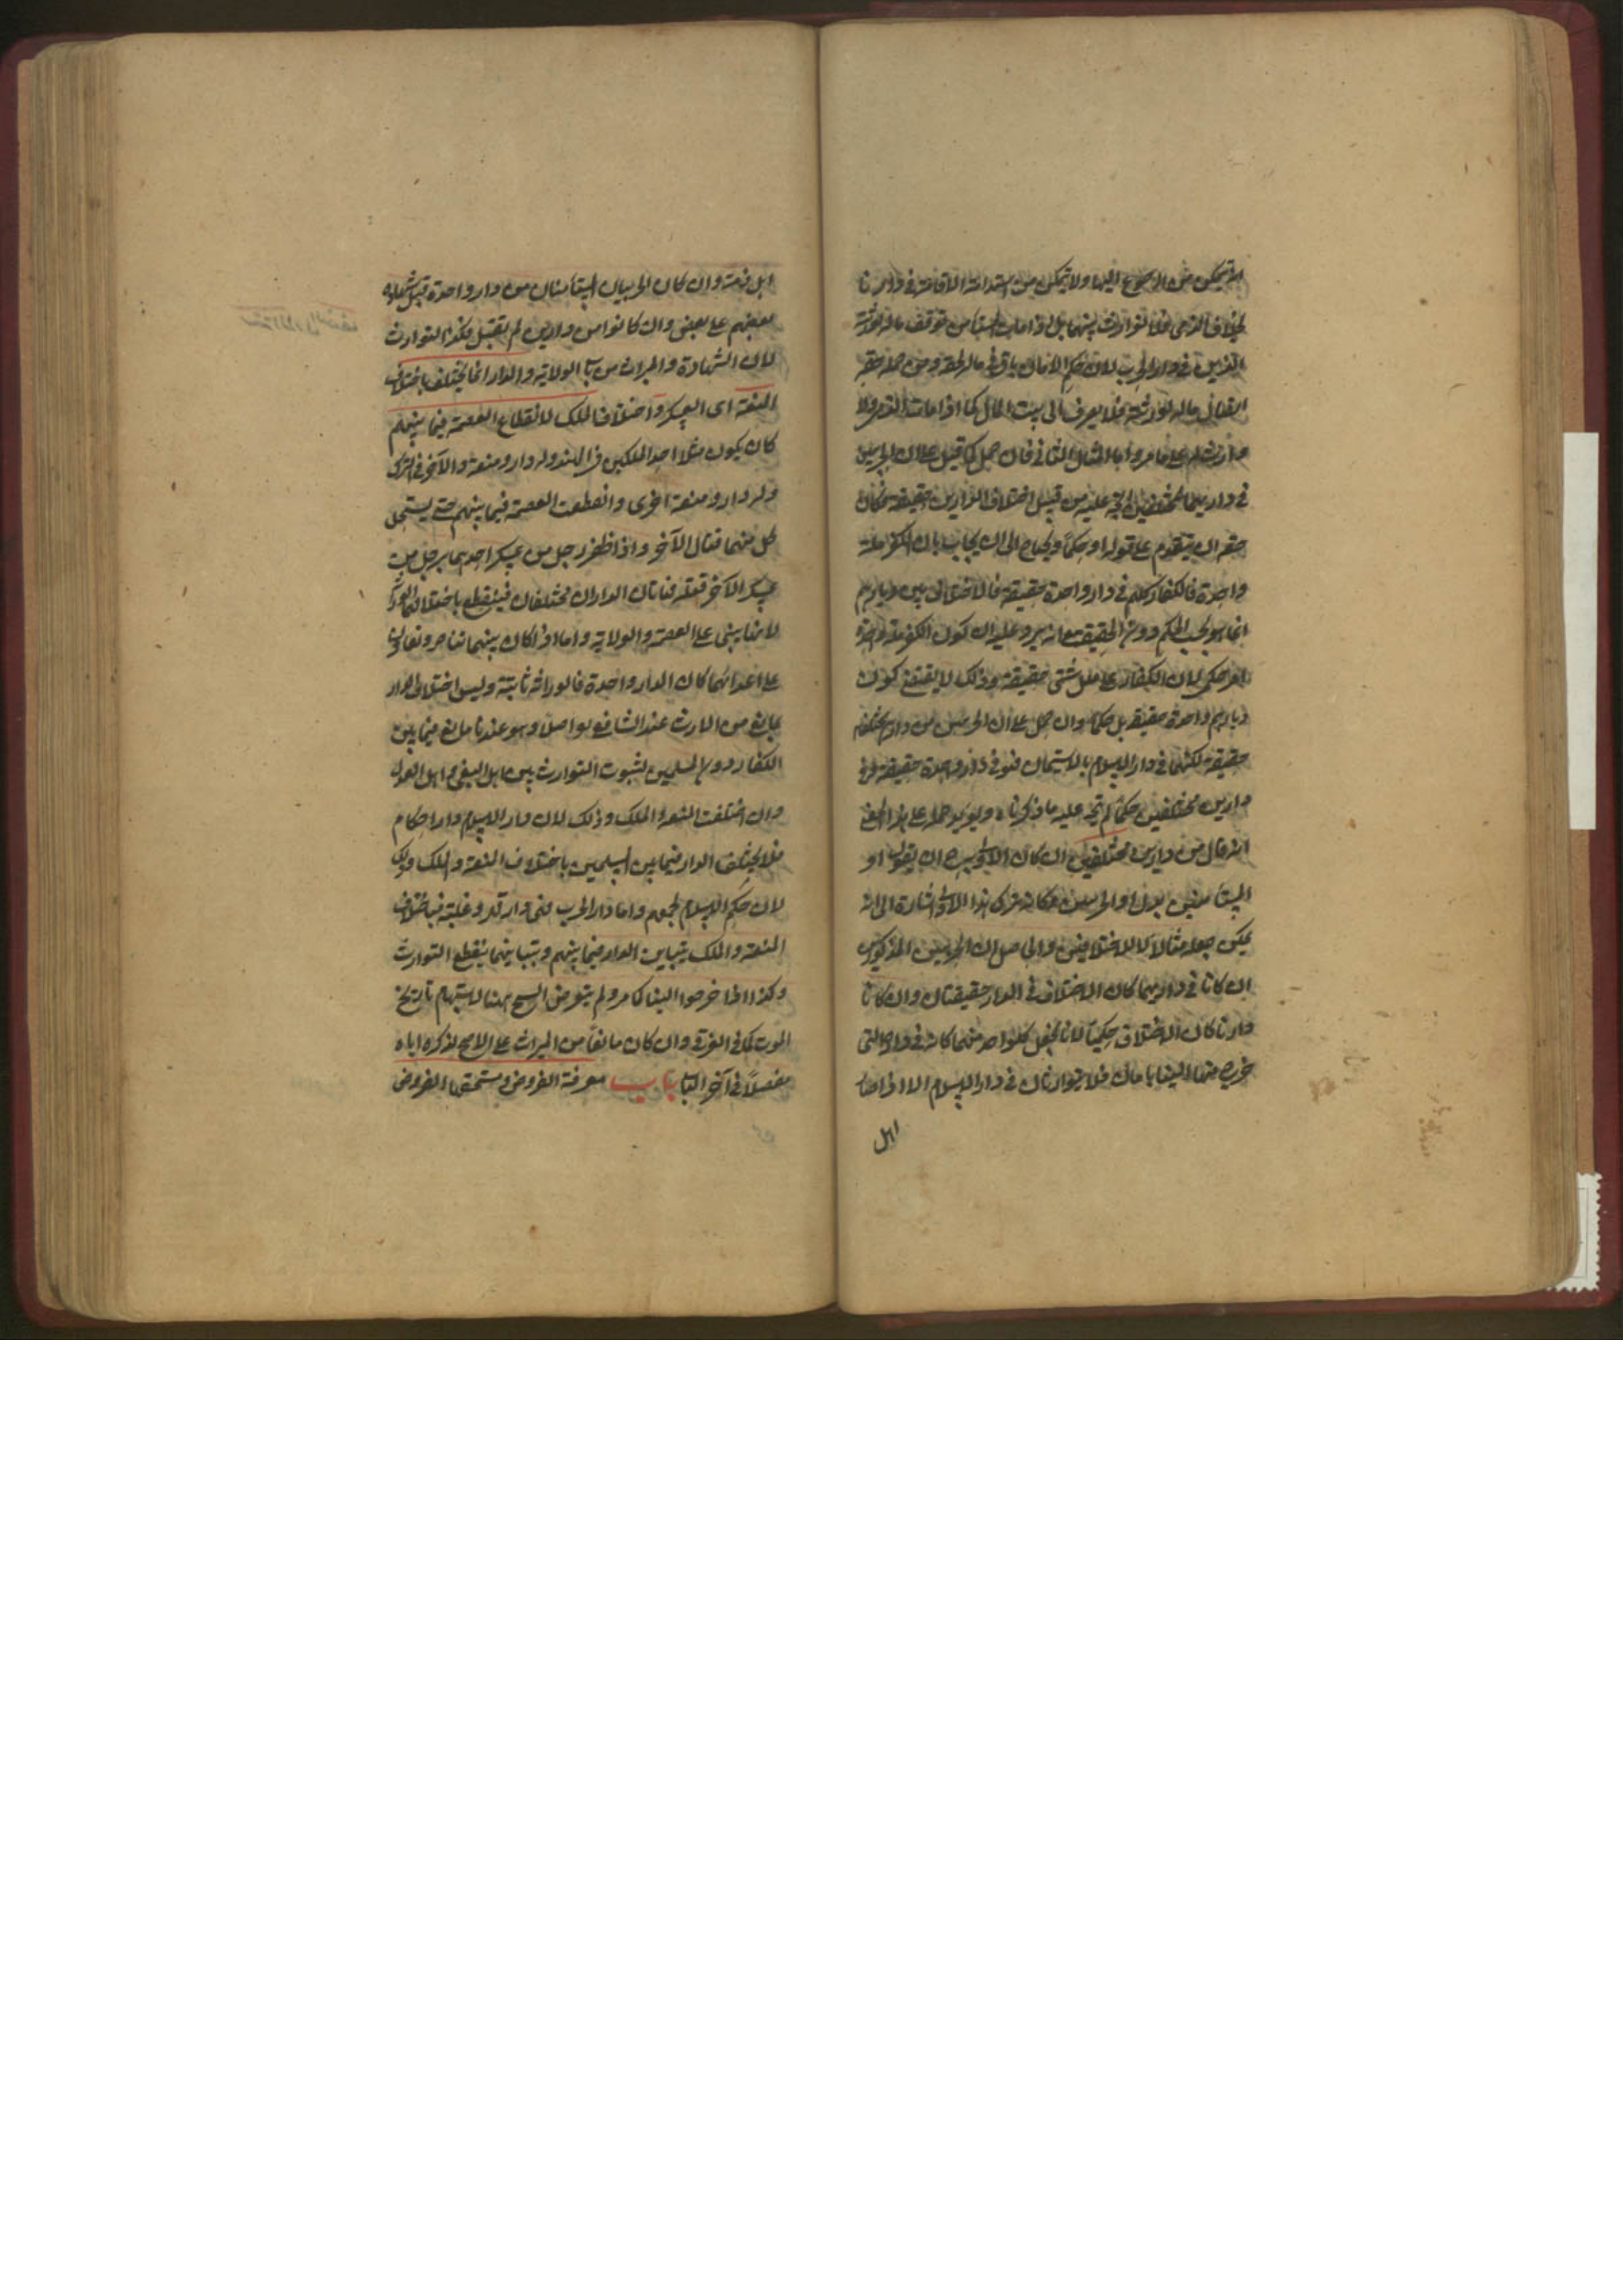 لانه يتمكن من الرجوع اليها ولا يتمكن من استدامة الاقامة في دارنا
بخلاف الذمي فلا توارث بينهما بل اذا مات المستأمن توقف ماله لورثته
الذين في دار الحرب لان حكم الامان باق في ماله لحقه ومن جملة حقه
ايصال ماله لورثته فلا يصرف الى بيت المال كما اذا مات الذمي ولا
وارث له على ما مر واما المثال الثاني فان حمل كما قيل على ان الحربيين
في داريهما المختلفين اتجه عليه من قبيل اختلاف الدارين حقيقة فكان
حقه ان يتقدم على قوله او حكما ويحتاج الى ان يجاب بان الكفر ملة
واحدة فالكفار كلهم في دار واحدة حقيقة فالاختلاف بين ديارهم
انما هو بحسب الحكم دون الحقيقة مع انه يرد عليه ان كون الكفر ملة واحدة
امر حكمي لان الكفار على ملل شتى حقيقة وذلك لا يقتضي كون
ديارهم واحدة حقيقة بل حكما وان حمل على ان الحربيين من دارين مختلفين
حقيقة لكنهما في دار الاسلام بالاستيمان فهو في دار واحدة حقيقة وفي
دارين مختلفين حكما لم يتجه عليه ما ذكرناه ويؤيد حمله على هذا المعنى
انه قال من دارين مختلفين ان كان الاولى به ان يقول او
المستأمنين بدل او الحربيين فكانه ترك هذا الاولى اشارة الى انه
يمكن جعله مثالا للاختلافين والحاصل ان الحربيين المذكورين
ان كانا في داريهما كان الاختلاف في الدار حقيقتان وان كانا في
دارنا كان الاختلاف حكميا لانا نجعل كل واحد منهما كانه في داره التي
خرج منها الينا بامان فلا يتوارثان في دار الاسلام الا اذا صارا
اهل
اهل ذمة وان كان الحربيان المستأمنان من دار واحدة قبل شهادة
بعضهم على بعض وان كانوا من دارين لم تقبل فكذا التوارث
لان الشهادة والميراث من باب الولاية والدار انما تختلف باختلاف
المنعة اى العسكر واختلاف الملك لانقطاع العصمة فيما بينهم
كان يكون مثلا احد الملكين في الهند وله دار ومنعة والآخر في الترك
وله دار ومنعة اخرى وانقطعت العصمة فيما بينهم حتى يستحل
كل منهما قتال الآخر واذا ظفر رجل من عسكر احدهما برجل من
عسكر الآخر قتله فهاتان الداران مختلفان فينقطع باختلافهما الوراثة
لانها تبنى على العصمة والولاية واما اذا كان بينهما تناصر وتعاون
على اعدائهما كان الدار واحدة فالوراثة ثابتة وليس اختلاف الدار
بمانع من الارث عند الشافعي اصلا وهو عندنا مانع فيما بين
الكفار دون المسلمين لثبوت التوارث بين اهل البغي واهل العدل
وان اختلفت المنعة والملك وذلك لان دار الاسلام دار احكام
فلا يختلف الدار فيما بين المسلمين باختلاف المنعة والملك وذلك
لان حكم الاسلام يجمعهم واما دار الحرب فهي دار قهر وغلبة فباختلاف
المنعة والملك يتباين الدار فيما بينهم وبتباينها ينقطع التوارث
وكذا اذا خرجوا الينا كما مر ولم يتعرض المص ههنا لاستبهام تاريخ
الموت كما في الغرقى وان كان مانعا من الميراث على الاصح لذكره اياه
مفصلا في آخر الكتاب باب معرفة الفروض ومستحقها الفروض